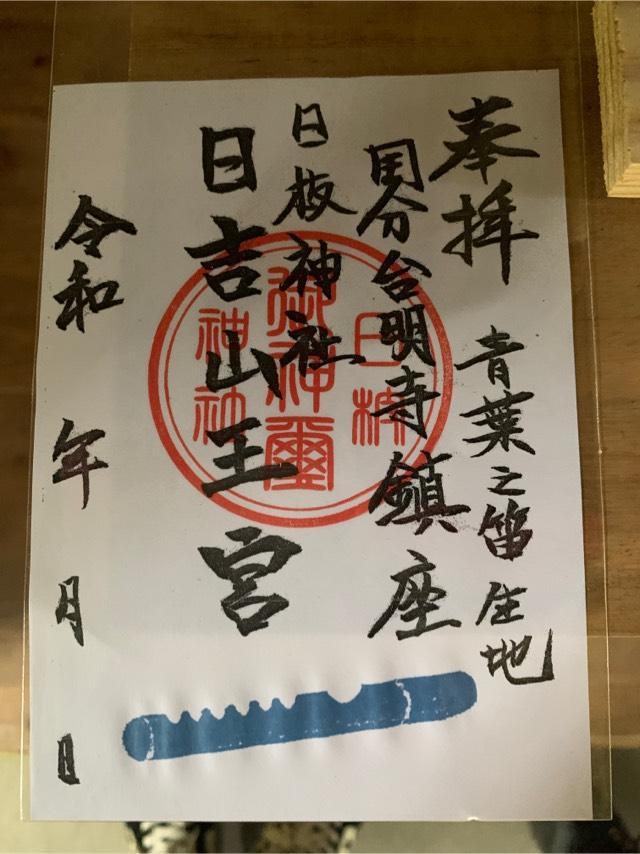 奉拝
青葉之笛生地
国分台明寺鎮座
日枝神社
日吉山王宮
令和 年 月 日
日枝
御神璽
神社